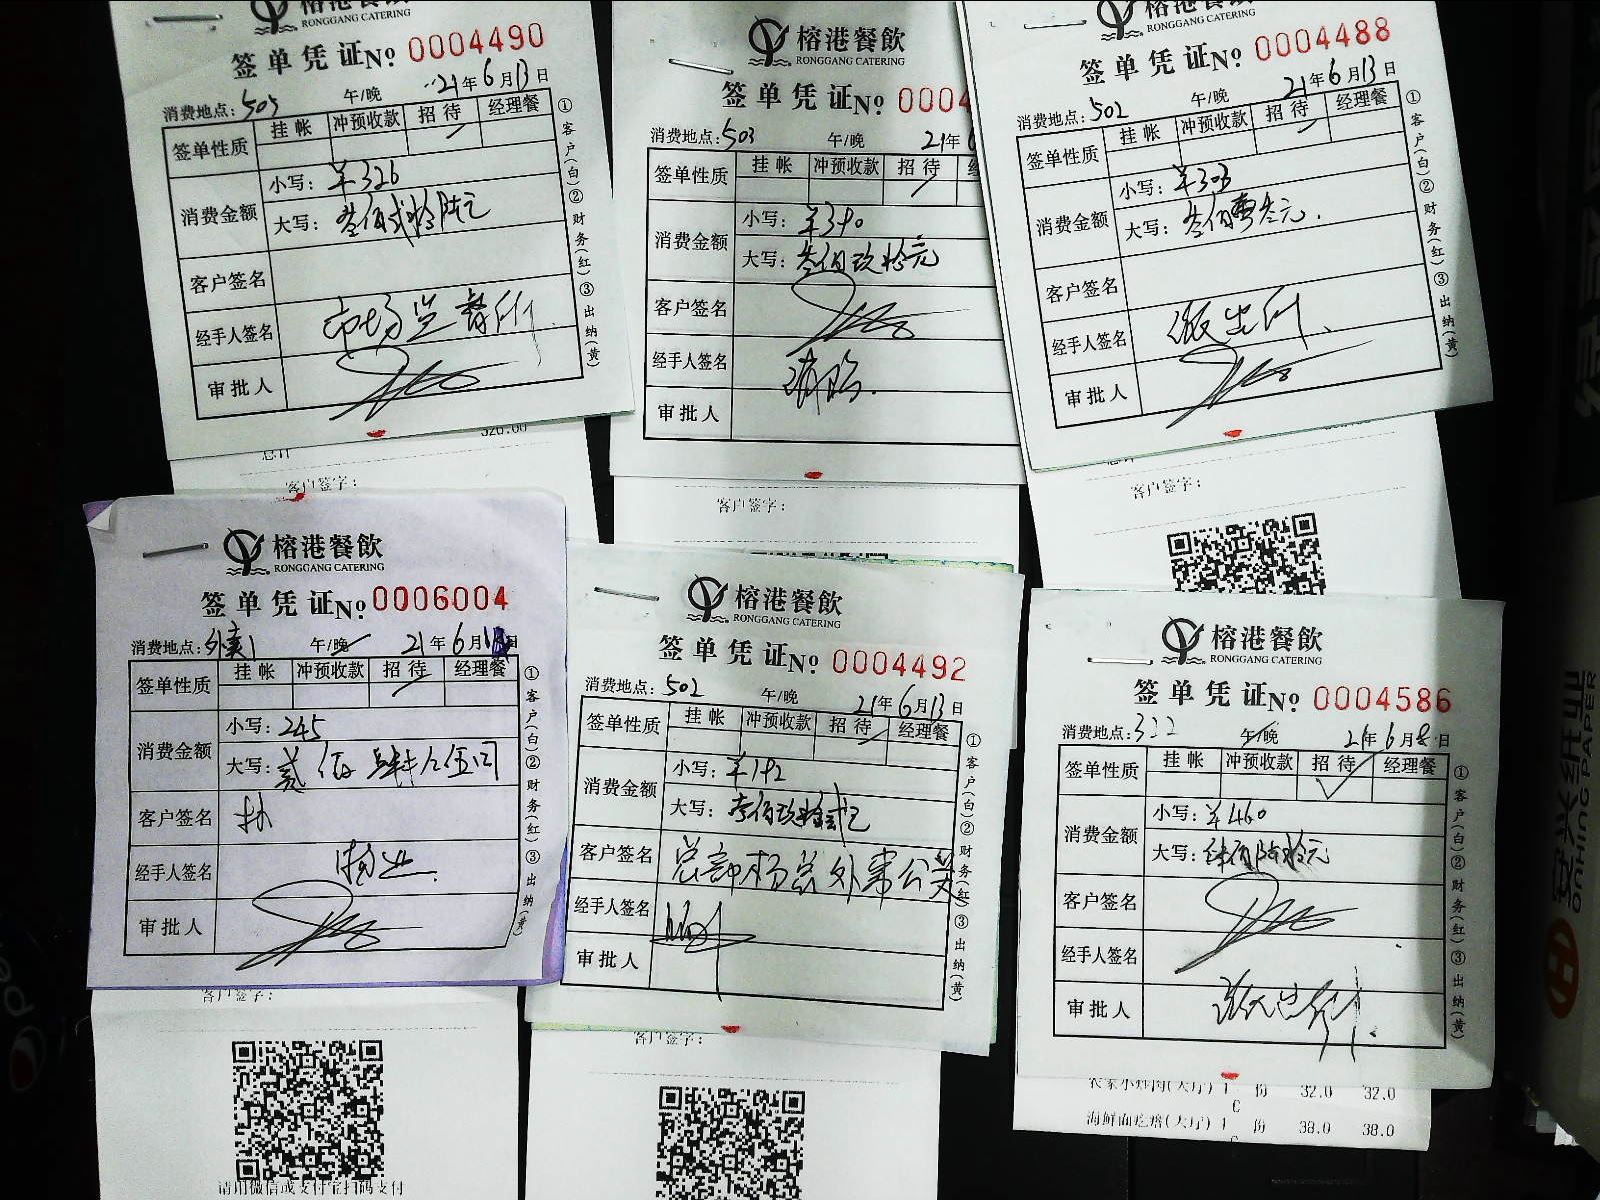 榕港餐飲
RONGGANG CATERING
签单凭证No 0004490
21年6月13日
消费地点: 503 午/晚
签单性质 挂帐 冲预收款 招待 经理餐
消费金额 小写: ¥326
大写: 叁佰贰拾陆元
客户签名
经手人签名 市场监督所
审批人
①客户(白)②财务(红)③出纳(黄)
320.00
总计
客户签字:
榕港餐飲
RONGGANG CATERING
签单凭证No 0004
消费地点: 503 午/晚 21年
签单性质 挂帐 冲预收款 招待
消费金额 小写: ¥390
大写: 叁佰玖拾元
客户签名
经手人签名
审批人
客户签字:
榕港餐飲
RONGGANG CATERING
签单凭证No 0004488
21年6月13日
消费地点: 502 午/晚
签单性质 挂帐 冲预收款 招待 经理餐
消费金额 小写: ¥303
大写: 叁佰零叁元.
客户签名
经手人签名 派出所
审批人
①客户(白)②财务(红)③出纳(黄)
客户签字:
榕港餐飲
RONGGANG CATERING
签单凭证No 0006004
消费地点: 外卖1 午/晚 21年6月 日
签单性质 挂帐 冲预收款 招待 经理餐
消费金额 小写: 245
大写: 贰佰肆拾伍元
客户签名 林
经手人签名 物业
审批人
①客户(白)②财务(红)③出纳(黄)
客户签字:
请用微信或支付宝扫码支付
榕港餐飲
RONGGANG CATERING
签单凭证No 0004492
消费地点: 502 午/晚 21年6月13日
签单性质 挂帐 冲预收款 招待 经理餐
消费金额 小写: ¥392
大写: 叁佰玖拾贰元
客户签名 总部杨总外事公关
经手人签名
审批人
①客户(白)②财务(红)③出纳(黄)
客户签字:
榕港餐飲
RONGGANG CATERING
签单凭证No 0004586
消费地点: 322 午/晚 21年6月8日
签单性质 挂帐 冲预收款 招待 经理餐
消费金额 小写: ¥460
大写: 肆佰陆拾元
客户签名
经手人签名
审批人 派出所
①客户(白)②财务(红)③出纳(黄)
农家小炒肉(大厅) 1 份 32.0 32.0
C
海鲜面疙瘩(大厅) 1 份 38.0 38.0
C
ONHING PAPER